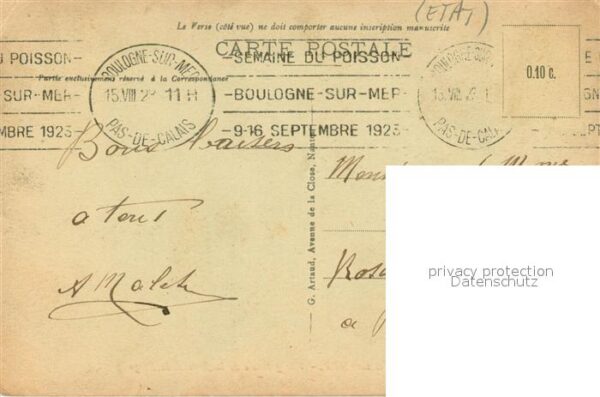 (ETAT)
Le Verso (côté vue) ne doit comporter aucune inscription manuscrite
CARTE POSTALE
Partie exclusivement réservé à la Correspondance
U POISSON-
SUR-MER-
MBRE 1923-
BOULOGNE-SUR-MER
15.VIII 23 11 H
PAS-DE-CALAIS
-SEMAINE DU POISSON-
-BOULOGNE-SUR-MER-
9-16 SEPTEMBRE 1923-
BOULOGNE-SUR-
15.VIII. 2
PAS-DE-CALAIS
0.10 c.
Bons baisers
a tous
G. Artaud, Avenue de la Close,
a
privacy protection
Datenschutz